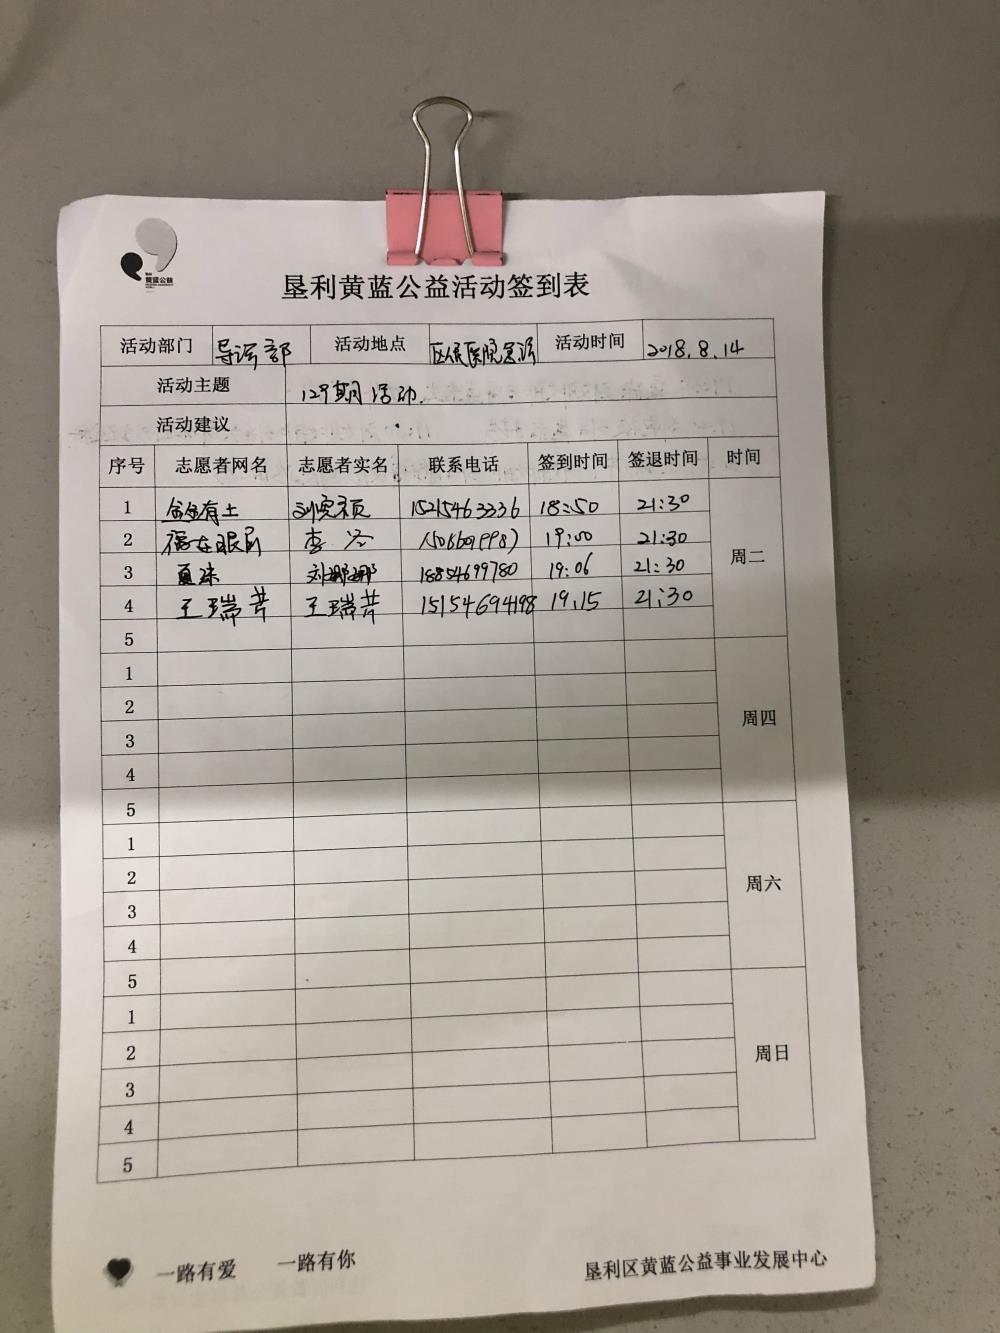 黄蓝公益
垦利黄蓝公益活动签到表
活动部门 导诊部 活动地点 区人民医院急诊 活动时间 2018.8.14
活动主题 129期活动.
活动建议
序号 志愿者网名 志愿者实名 联系电话 签到时间 签退时间 时间
1 金金有土 15215463336 18:50 21:30
2 福在眼前 李 19:00 21:30
周二
3 夏沫 刘娜娜 18854699780 19:06 21:30
4 王瑞芳 王瑞芳 15154694198 19.15 21:30
5
1
2
3
周四
4
5
1
2
周六
3
4
5
1
2
周日
3
4
5
一路有爱 一路有你
垦利区黄蓝公益事业发展中心